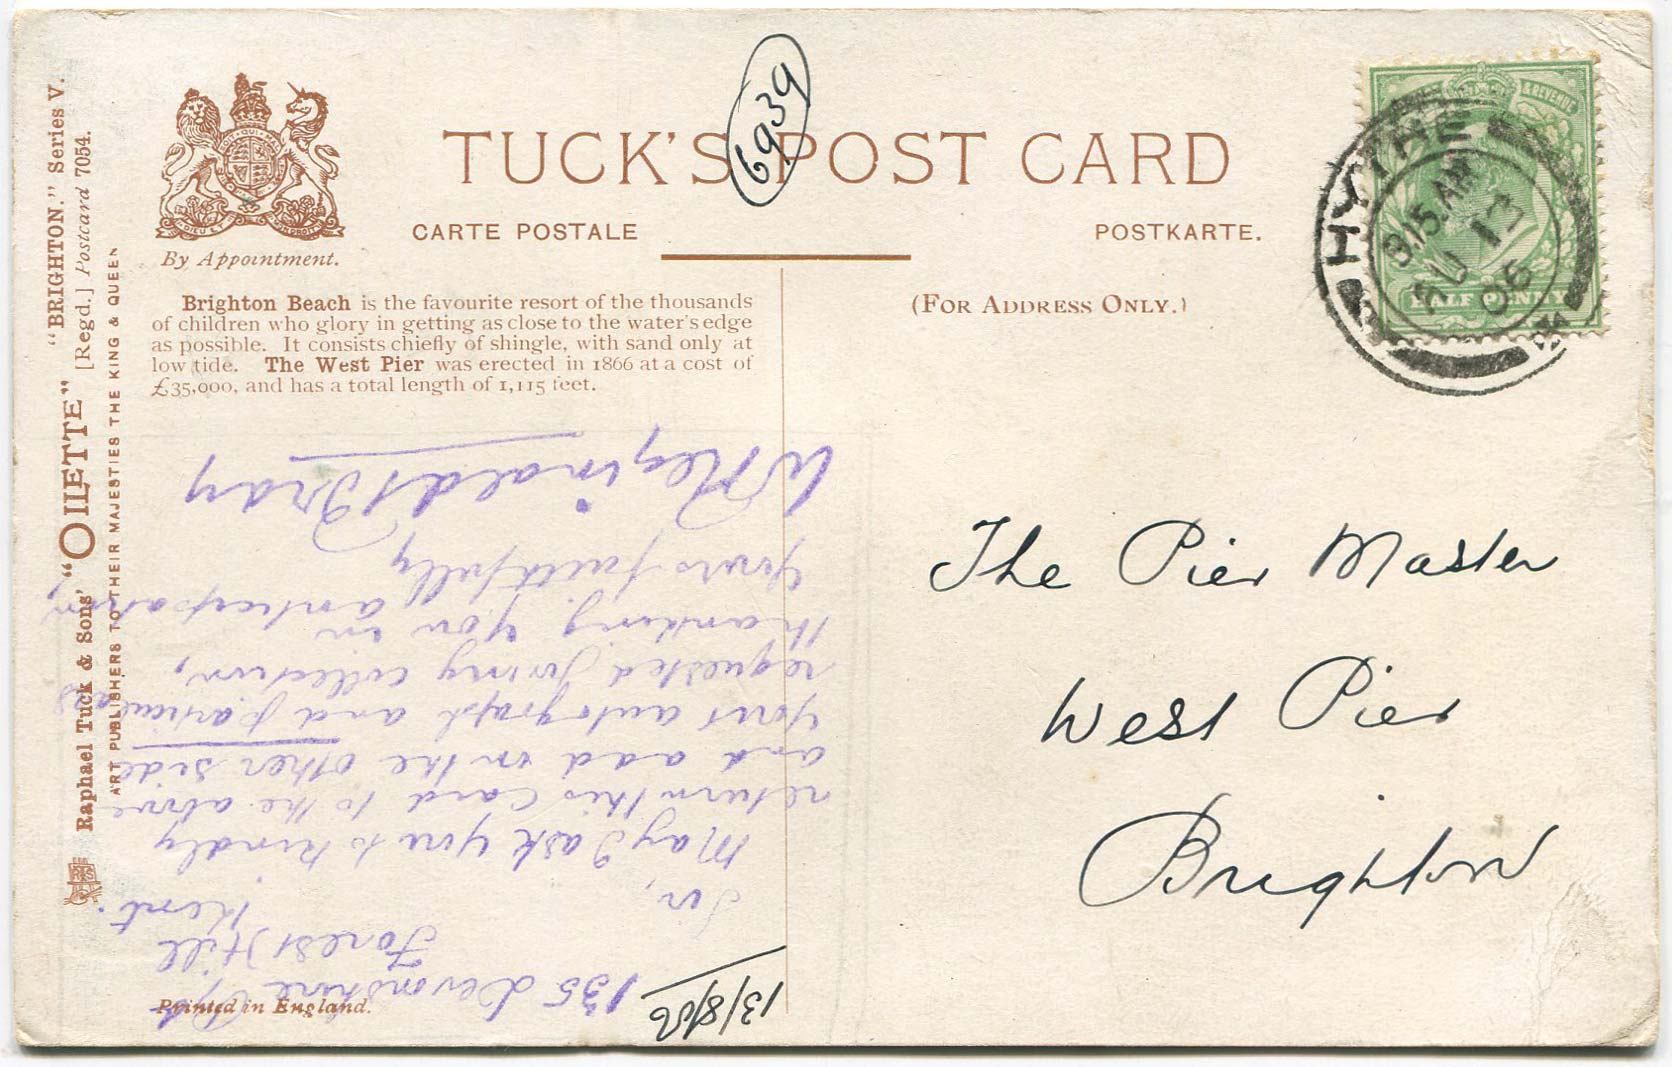 TUCK'S POST CARD
6939
CARTE POSTALE
POSTKARTE.
By Appointment.
(FOR ADDRESS ONLY.)
Brighton Beach is the favourite resort of the thousands
of children who glory in getting as close to the water's edge
as possible. It consists chiefly of shingle, with sand only at
low tide. The West Pier was erected in 1866 at a cost of
£35,000, and has a total length of 1,115 feet.
"BRIGHTON." Series V.
Raphael Tuck & Sons' "OILETTE" [Regd.] Postcard 7054.
ART PUBLISHERS TO THEIR MAJESTIES THE KING & QUEEN
& REVENUE
HALF PENNY
HYTHE
8.15 AM
AU 17
06
The Pier Master
West Pier
Brighton
13/8/06
135 Devonshire
Forest Hill
Kent.
Sir,
May I ask you to kindly
return this card to the above
and add on the other side
your autograph and particulars
requested for my collection,
thanking you in anticipation,
Yours faithfully
W Reginald Bray
Printed in England.